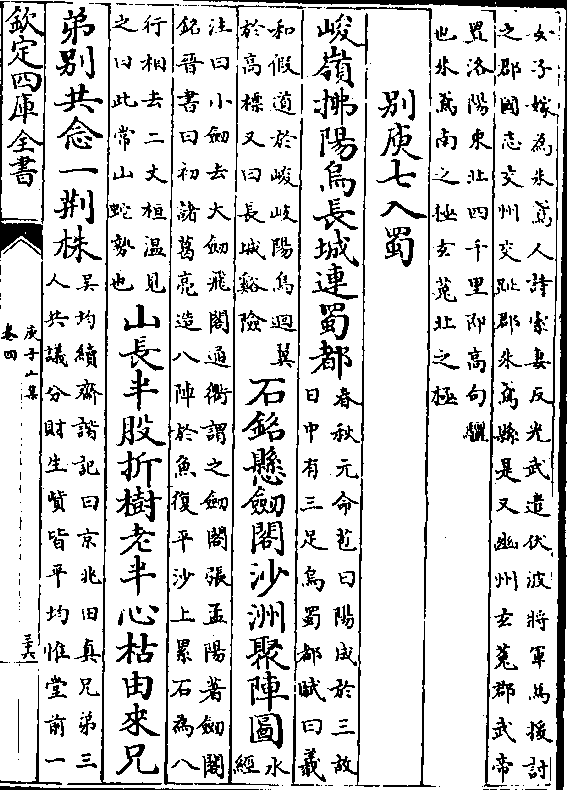 女子嫁為朱鳶人詩索妻反光武遣伏波將軍馬援討
之郡國志交州交趾郡朱鳶縣是又幽州玄菟郡武帝
置洛陽東北四千里即高句驪
也朱鳶南之極玄菟北之極
別庾七入蜀
峻嶺拂陽烏長城連蜀都
春秋元命苞曰陽成於三故
日中有三足烏蜀都賦曰羲
和假道於峻岐陽烏迴翼
於高標又曰長城豁險
石銘懸劒閣沙洲聚陣圖
水
經
注曰小劒去大劒飛閣通衢謂之劒閣張孟陽著劒閣
銘晉書曰初諸葛亮造八陣於魚復平沙上累石為八
行相去二丈桓温見
之曰此常山蛇勢也
山長半股折樹老半心枯由來兄
弟別共念一荆株
吳均續齊諧記曰京兆田真兄弟三
人共議分財生貲皆平均惟堂前一
欽定四庫全書
庾子山集
卷四
三六